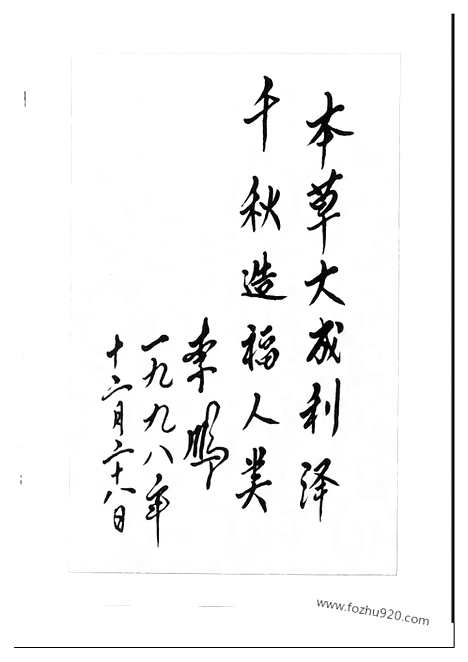 本草大成利泽
千秋造福人类
李鹏
一九九八年
十二月二十八日
www.fozhu920.com